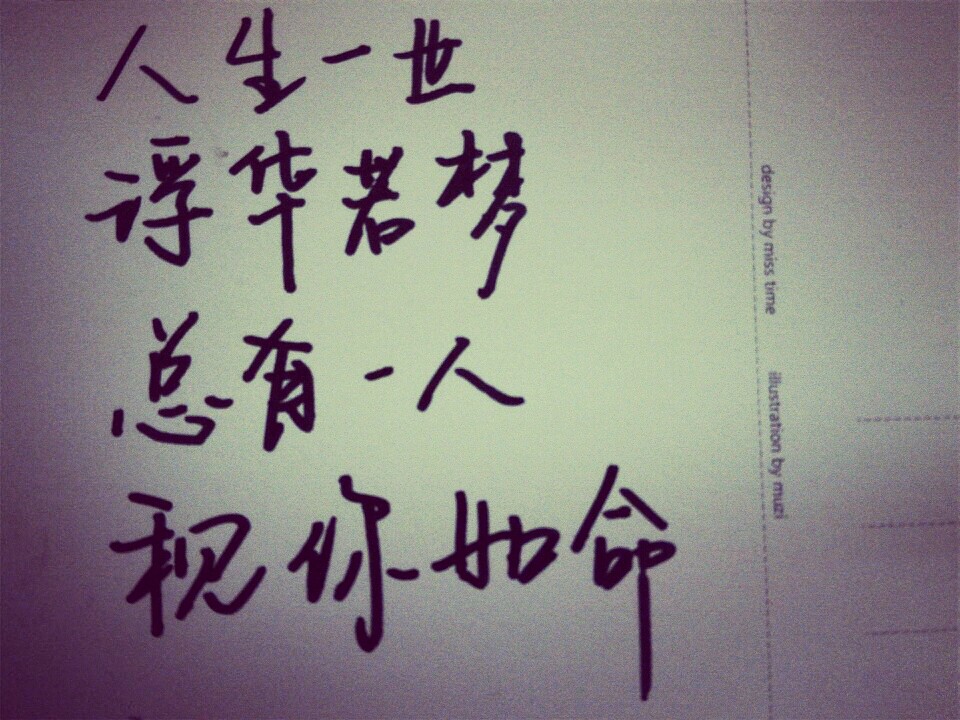 人生一世
浮华若梦
总有一人
视你如命
design by miss time
illustration by muzi